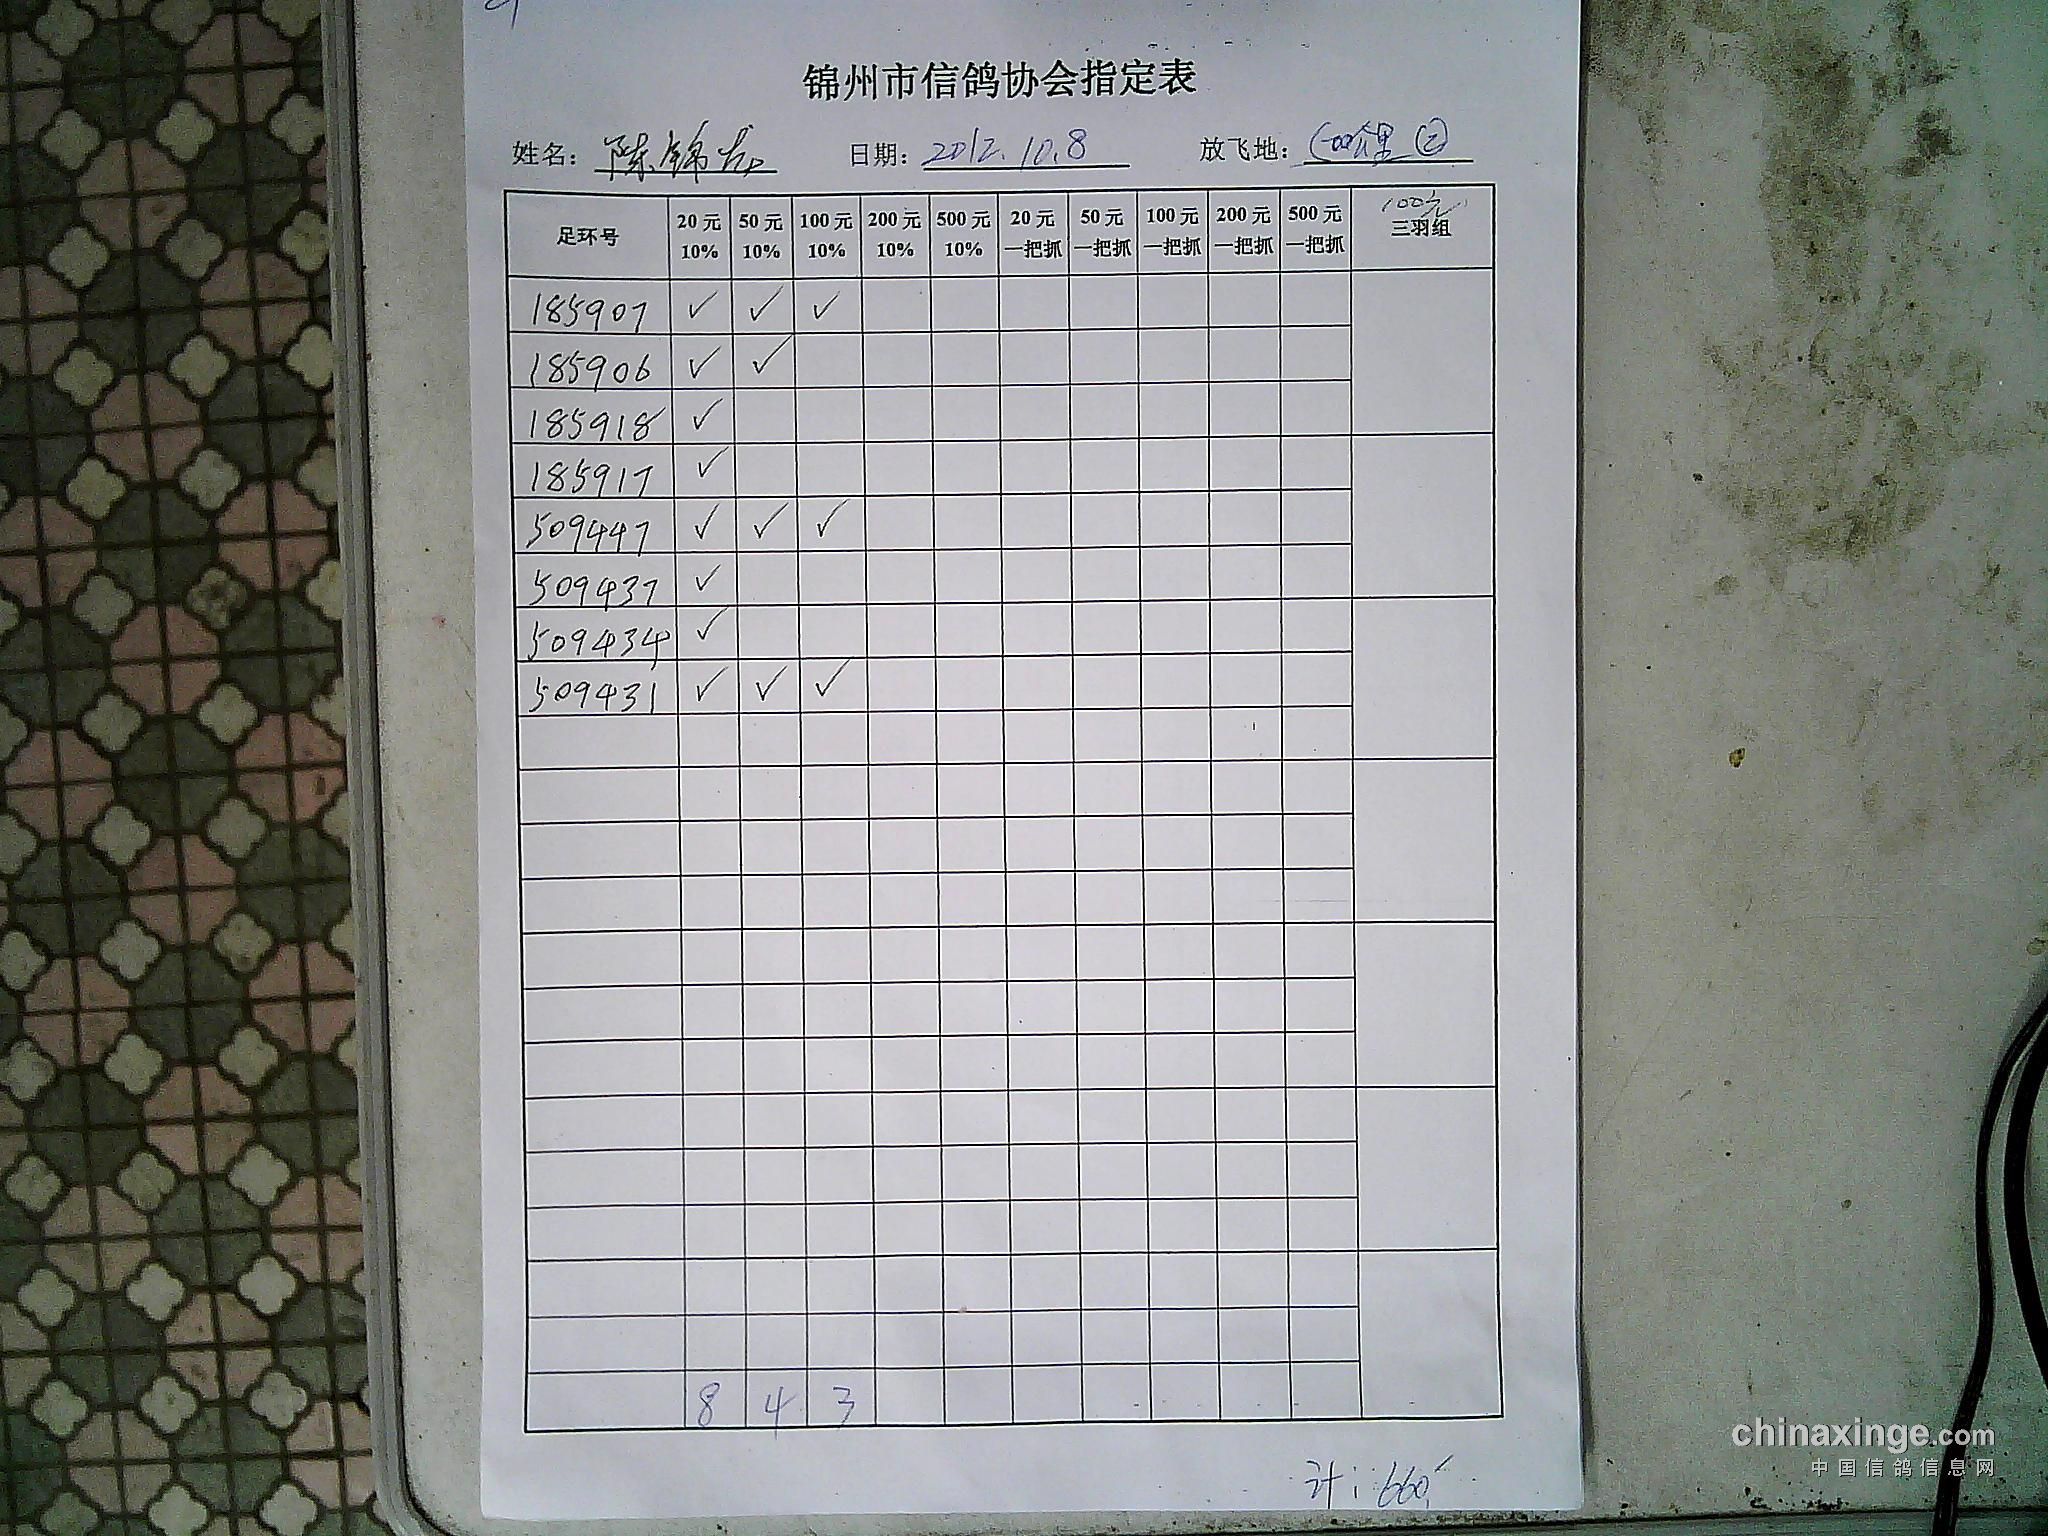 锦州市信鸽协会指定表
姓名: 陈锦龙 日期: 2012.10.8 放飞地: 500公里 ②
足环号 20元 10% 50元 10% 100元 10% 200元 10% 500元 10% 20元 一把抓 50元 一把抓 100元 一把抓 200元 一把抓 500元 一把抓 100元 三羽组
185907 ✓ ✓ ✓
185906 ✓ ✓
185918 ✓
185917 ✓
509447 ✓ ✓ ✓
509437 ✓
509434 ✓
509431 ✓ ✓ ✓
8 4 3
计: 660
chinaxinge.com
中国信鸽信息网